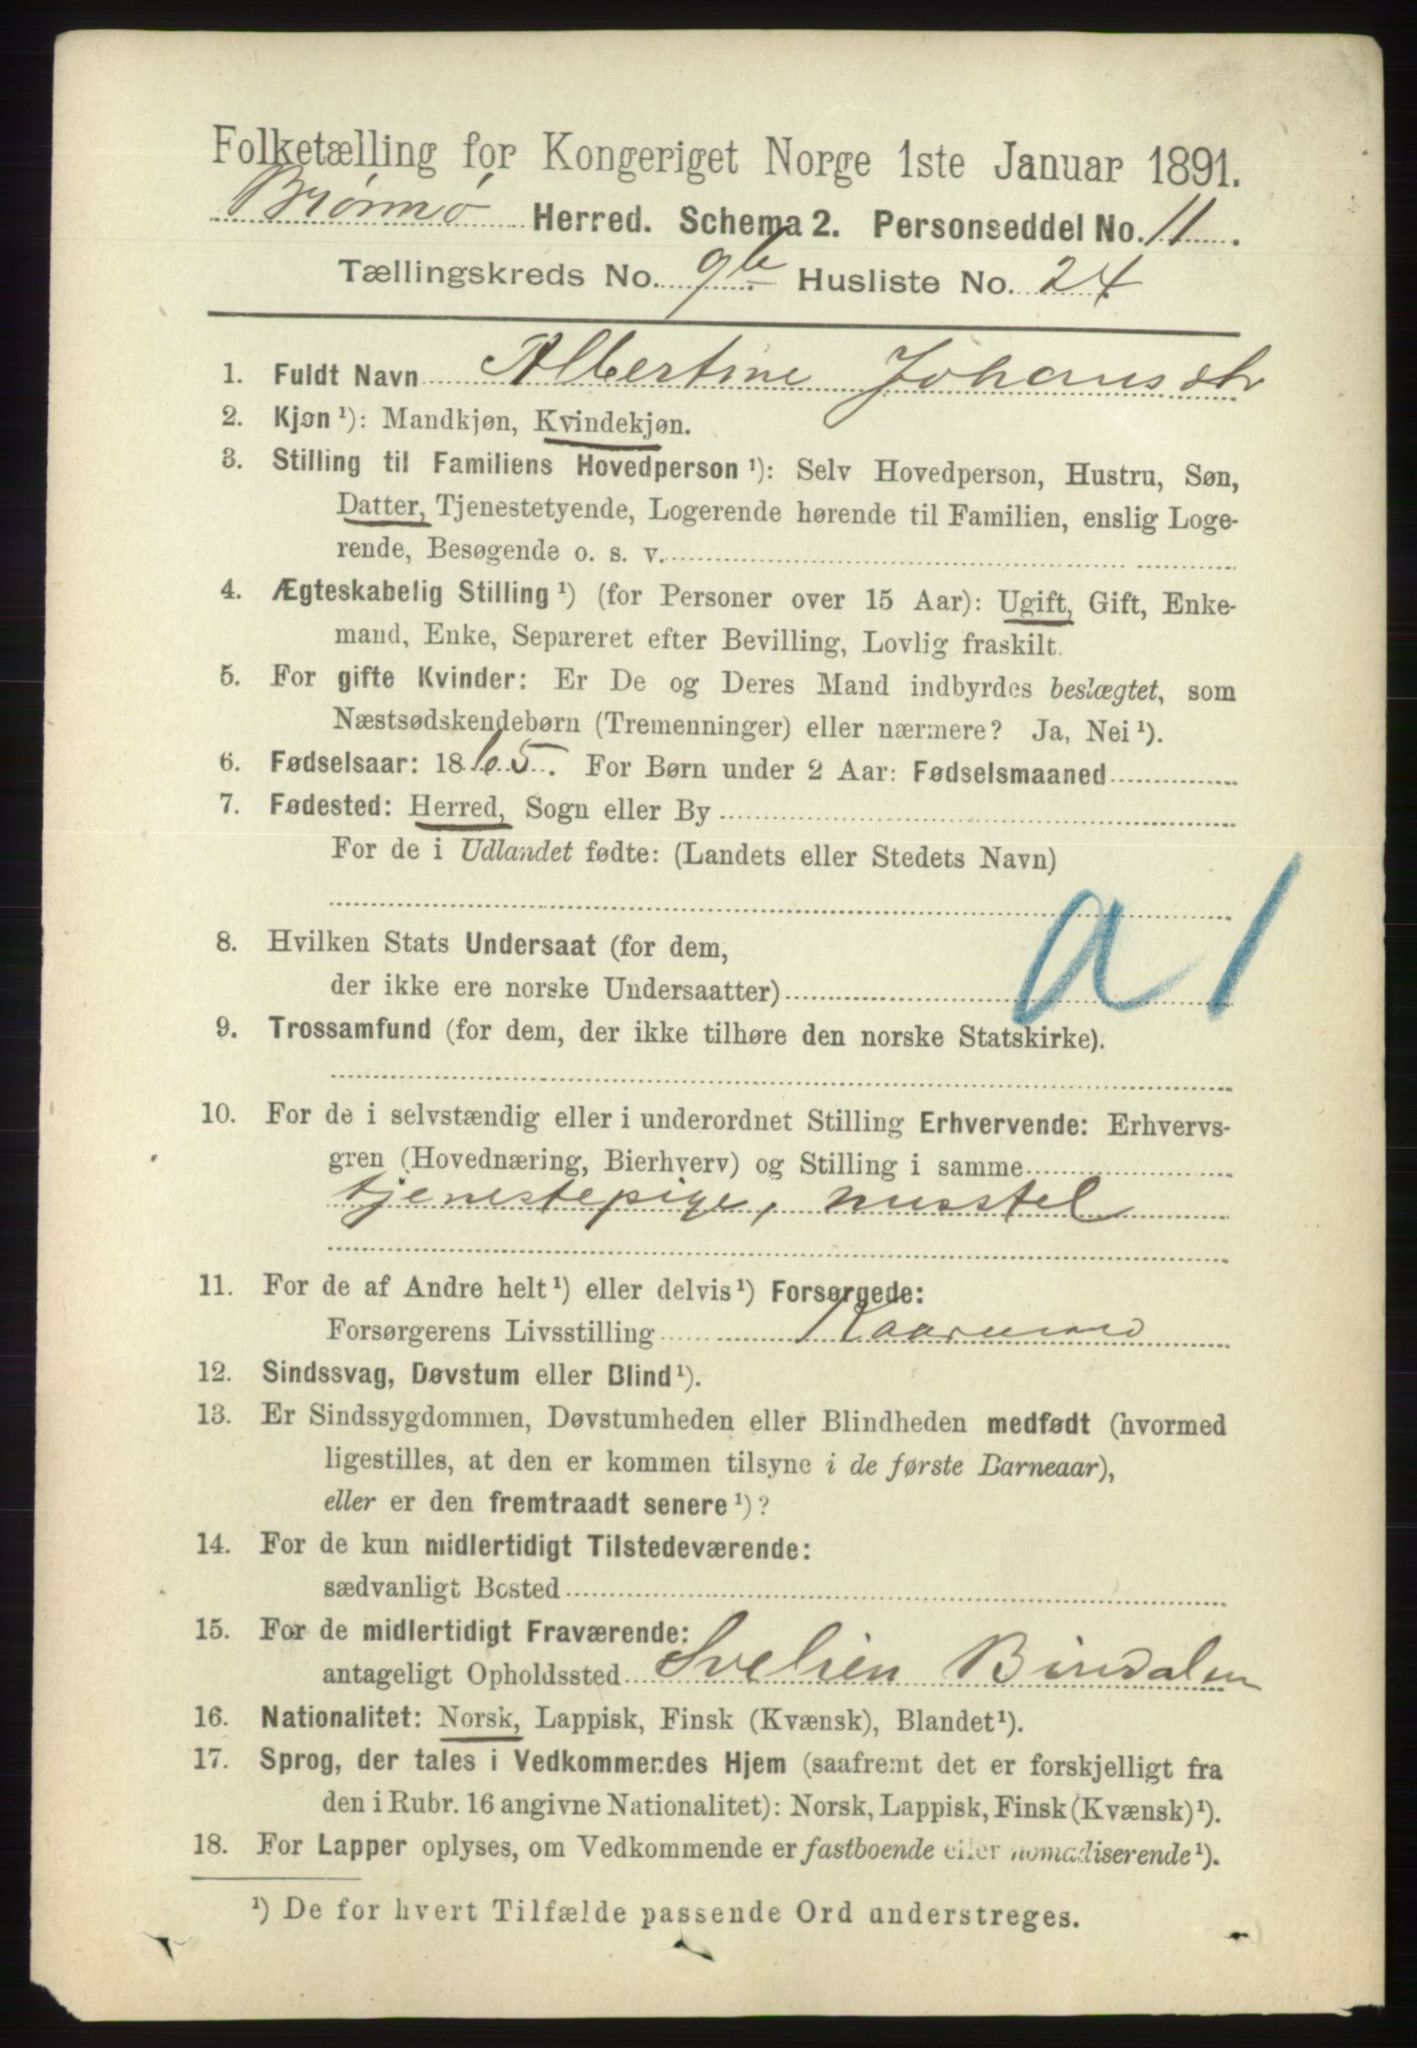 Folketælling for Kongeriget Norge 1ste Januar 1891.
Brønnø Herred. Schema 2. Personseddel No. 11.
Tællingskreds No. 9b Husliste No. 24
1. Fuldt Navn Albertine Johansdtr
2. Kjøn ¹): Mandkjøn, Kvindekjøn.
3. Stilling til Familiens Hovedperson ¹): Selv Hovedperson, Hustru, Søn,
Datter, Tjenestetyende, Logerende hørende til Familien, enslig Loge-
rende, Besøgende o. s. v.
4. Ægteskabelig Stilling ¹) (for Personer over 15 Aar): Ugift, Gift, Enke-
mand, Enke, Separeret efter Bevilling, Lovlig fraskilt.
5. For gifte Kvinder: Er De og Deres Mand indbyrdes beslægtet, som
Næstsødskendebørn (Tremenninger) eller nærmere? Ja, Nei ¹).
6. Fødselsaar: 1865. For Børn under 2 Aar: Fødselsmaaned
7. Fødested: Herred, Sogn eller By
For de i Udlandet fødte: (Landets eller Stedets Navn)
a 1
8. Hvilken Stats Undersaat (for dem,
der ikke ere norske Undersaatter)
9. Trossamfund (for dem, der ikke tilhøre den norske Statskirke).
10. For de i selvstændig eller i underordnet Stilling Erhvervende: Erhvervs-
gren (Hovednæring, Bierhverv) og Stilling i samme
tjenestepige, husstel
11. For de af Andre helt ¹) eller delvis ¹) Forsørgede:
Forsørgerens Livsstilling Kaarmand
12. Sindssvag, Døvstum eller Blind ¹).
13. Er Sindssygdommen, Døvstumheden eller Blindheden medfødt (hvormed
ligestilles, at den er kommen tilsyne i de første Barneaar),
eller er den fremtraadt senere ¹)?
14. For de kun midlertidigt Tilstedeværende:
sædvanligt Bosted
15. For de midlertidigt Fraværende:
antageligt Opholdssted Bindalen
16. Nationalitet: Norsk, Lappisk, Finsk (Kvænsk), Blandet ¹).
17. Sprog, der tales i Vedkommendes Hjem (saafremt det er forskjelligt fra
den i Rubr. 16 angivne Nationalitet): Norsk, Lappisk, Finsk (Kvænsk) ¹).
18. For Lapper oplyses, om Vedkommende er fastboende eller nomadiserende ¹).
¹) De for hvert Tilfælde passende Ord understreges.